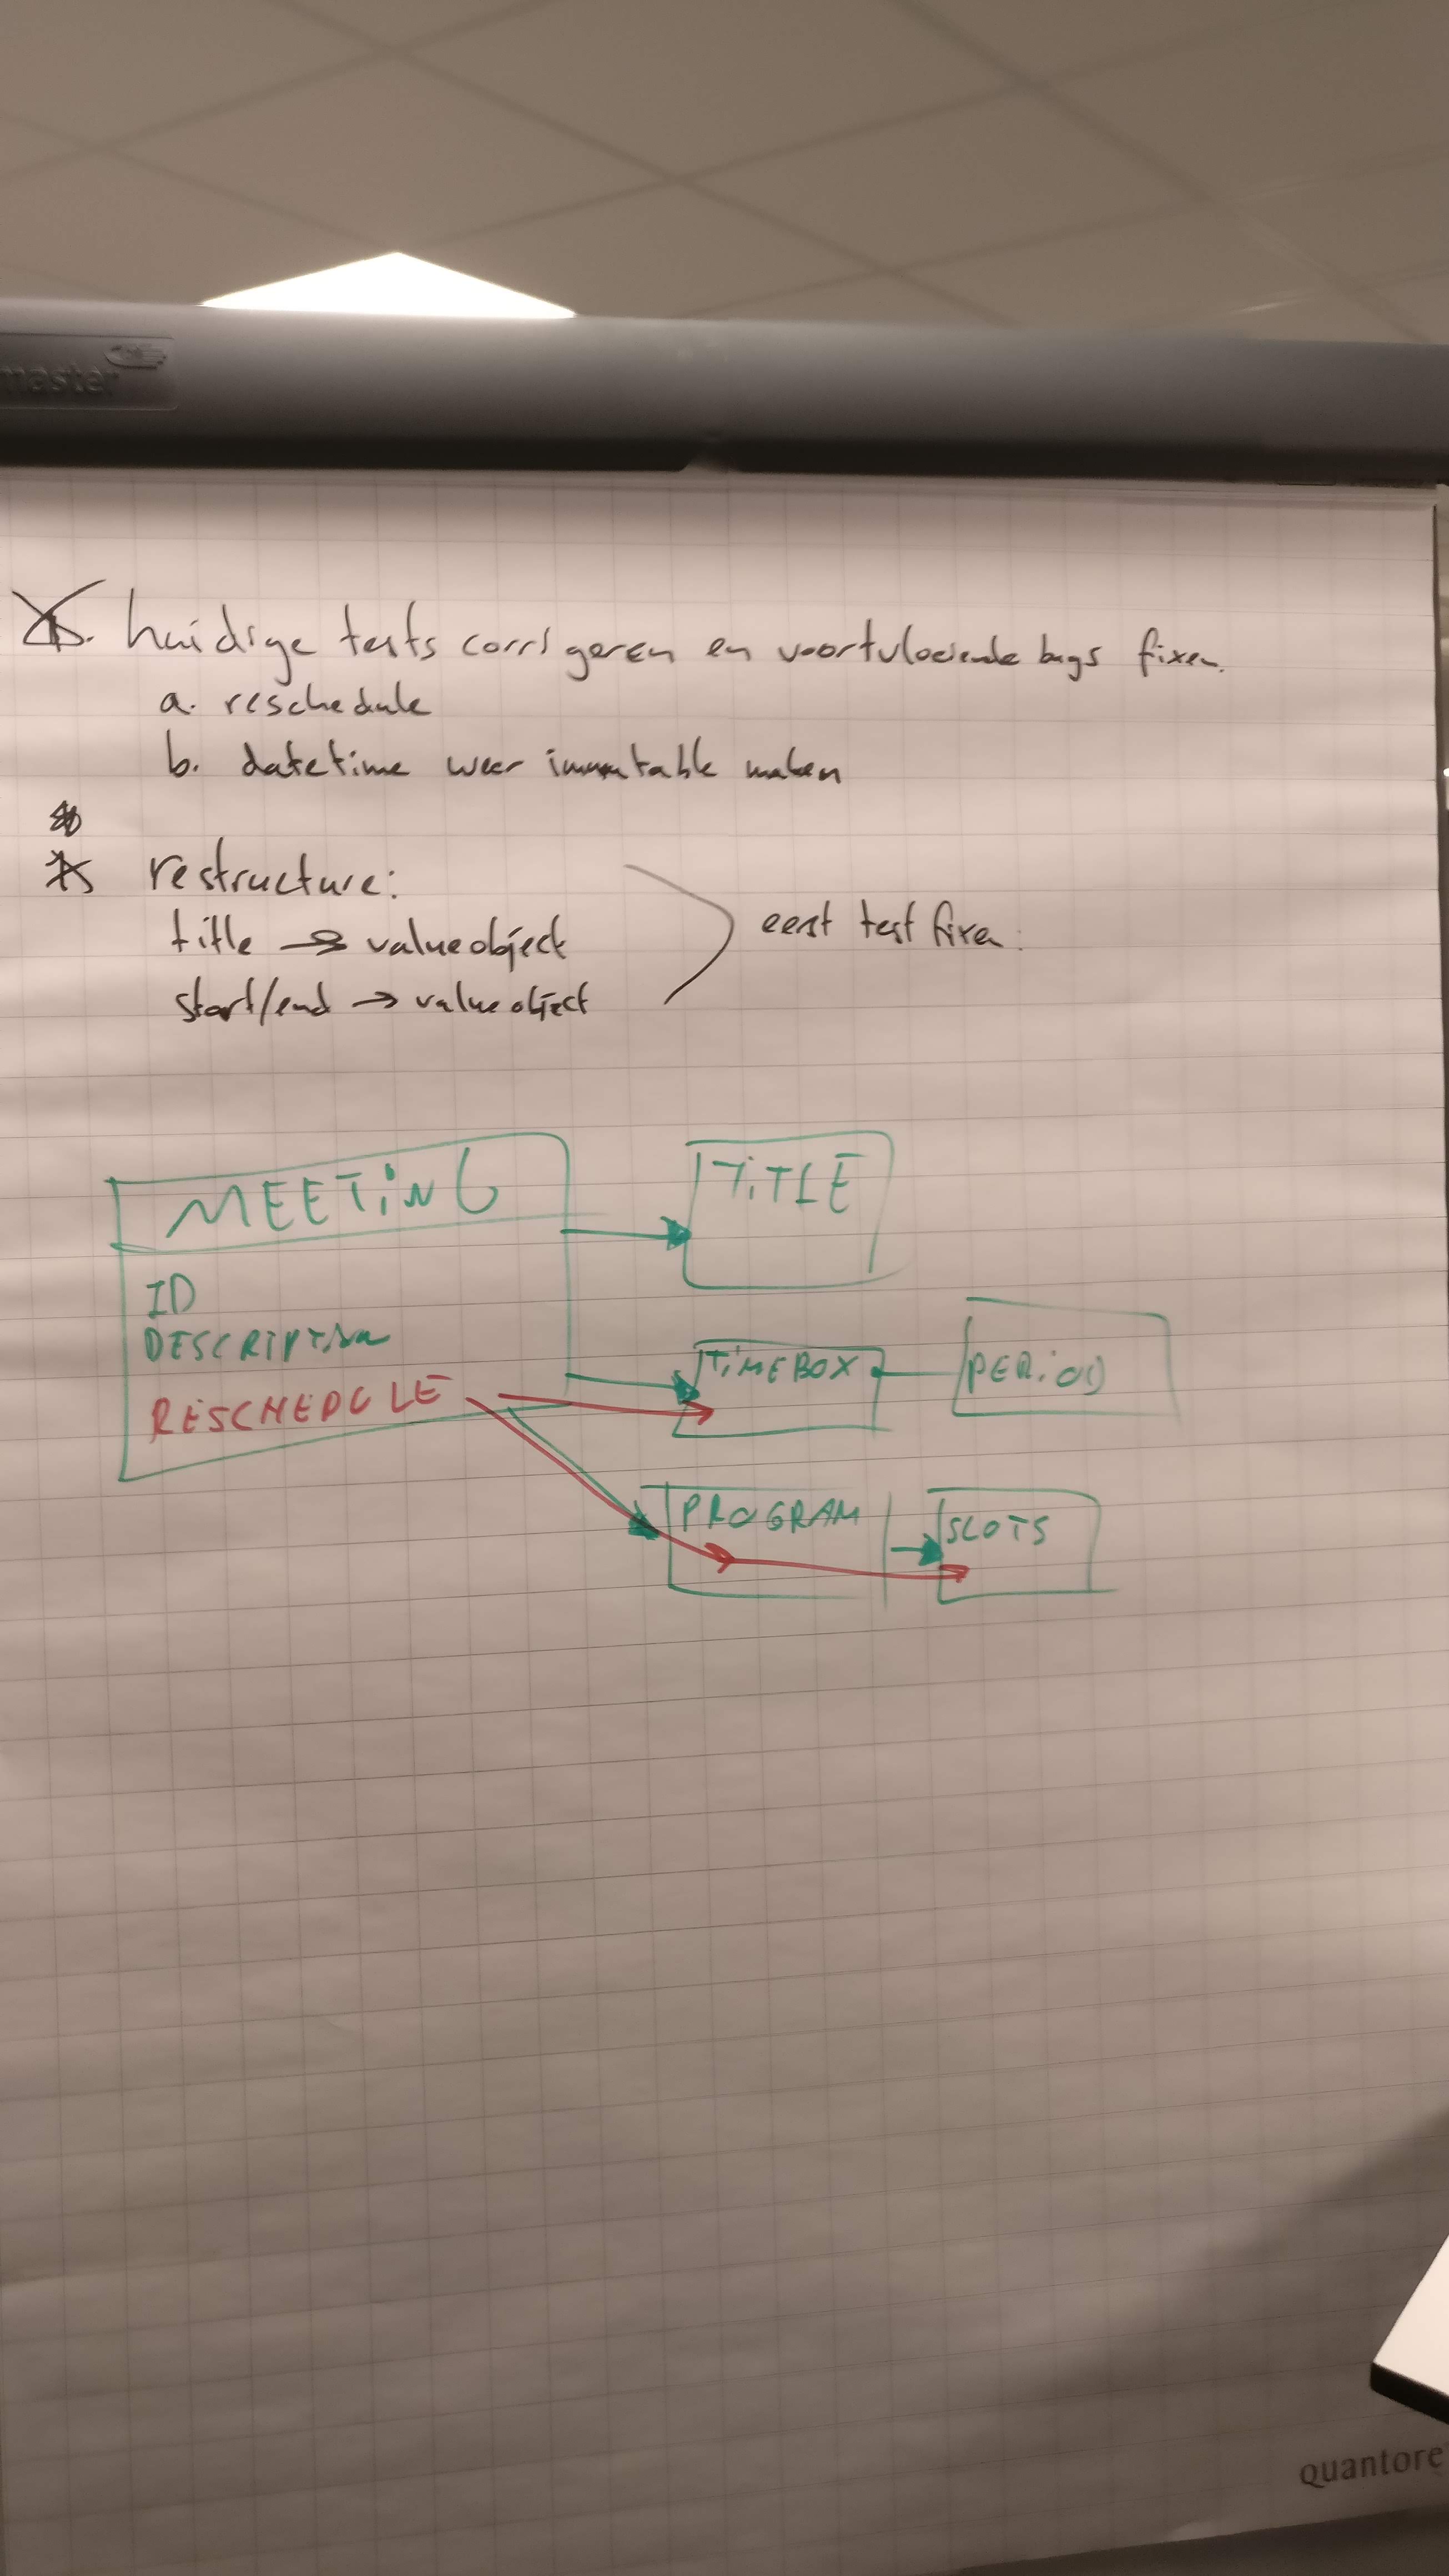 master
huidige tests corrigeren en voortvloeiende bugs fixen.
a. reschedule
b. datetime weer immutable maken
restructure:
title → valueobject
start/end → valueobject
eerst test fixen.
MEETING
ID
DESCRIPTION
RESCHEDULE
TITLE
TIMEBOX
PERIOD
PROGRAM
SLOTS
quantore